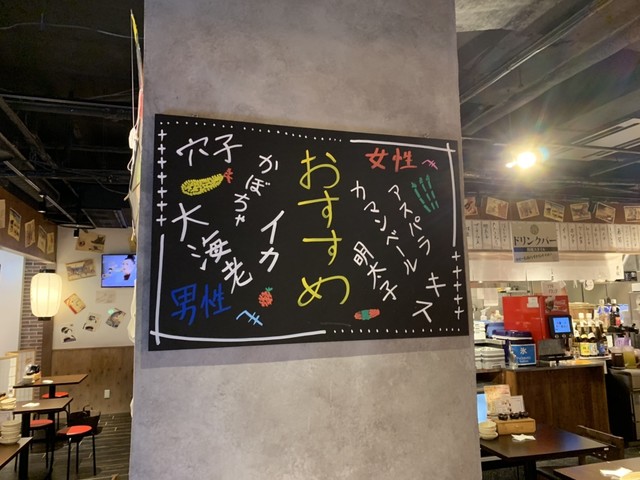 おすすめ
女性へ
アスパラ
カマンベール
明太子
キス
穴子
かぼちゃ
イカ
大海老
男性へ
ドリンクバー
氷